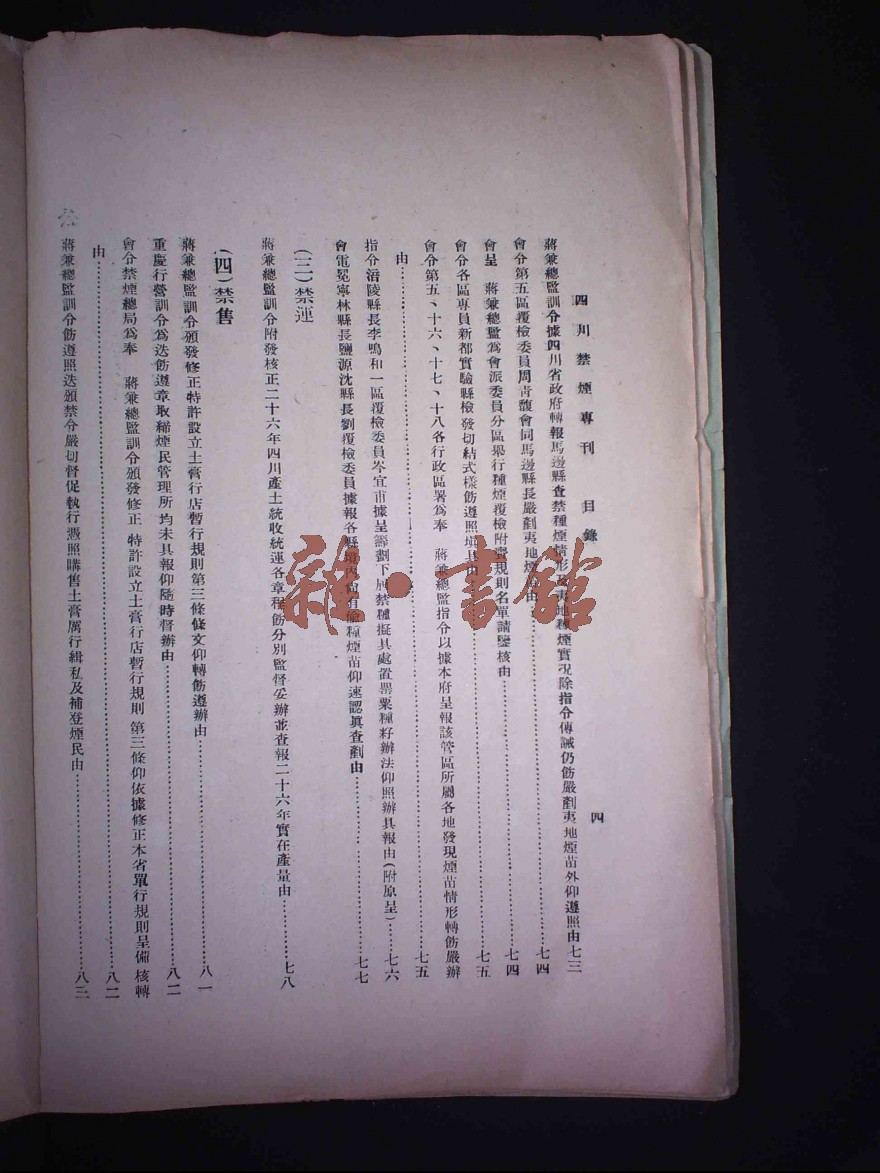 四川禁煙專刊　目錄　四
蔣兼總監訓令據四川省政府轉報馬邊縣查禁種煙情形及夷地種煙實況除指令傳誡仍飭嚴剷夷地煙苗外仰遵照由七三
會令第五區覆檢委員周青馥會同馬邊縣長嚴剷夷地煙由……七四
會呈　蔣兼總監為會派委員分區舉行種煙覆檢附賫規則名單請鑒核由……七五
會令各區專員新都實驗縣檢發切結式樣飭遵照填具由
會令第五、十六、十七、十八各行政區署為奉　蔣兼總監指令以據本府呈報該管區所屬各地發現煙苗情形轉飭嚴辦
由……七五
指令涪陵縣長李鳴和一區覆檢委員岑宜甫據呈籌劃下屆禁種擬具處置罌粟種籽辦法仰照辦具報由（附原呈）……七六
會電冕寧林縣長鹽源沈縣長劉覆檢委員據報各縣境內尚有偷種煙苗仰速認眞查剷由……七七
（三）禁運
蔣兼總監訓令附發核正二十六年四川產土統收統運各章程飭分別監督妥辦並查報二十六年實在產量由……七八
（四）禁售
蔣兼總監訓令頒發修正特許設立土膏行店暫行規則第三條條文仰轉飭遵辦由……八一
重慶行營訓令為迭飭遵章取締煙民管理所均未具報仰隨時督辦由……八二
會令禁煙總局為奉　蔣兼總監訓令頒發修正特許設立土膏行店暫行規則第三條仰依據修正本省單行規則呈備核轉
由……八二
蔣兼總監訓令飭遵照迭頒禁令嚴切督促執行憑照購售土膏厲行緝私及補登煙民由……八三
雜·書館